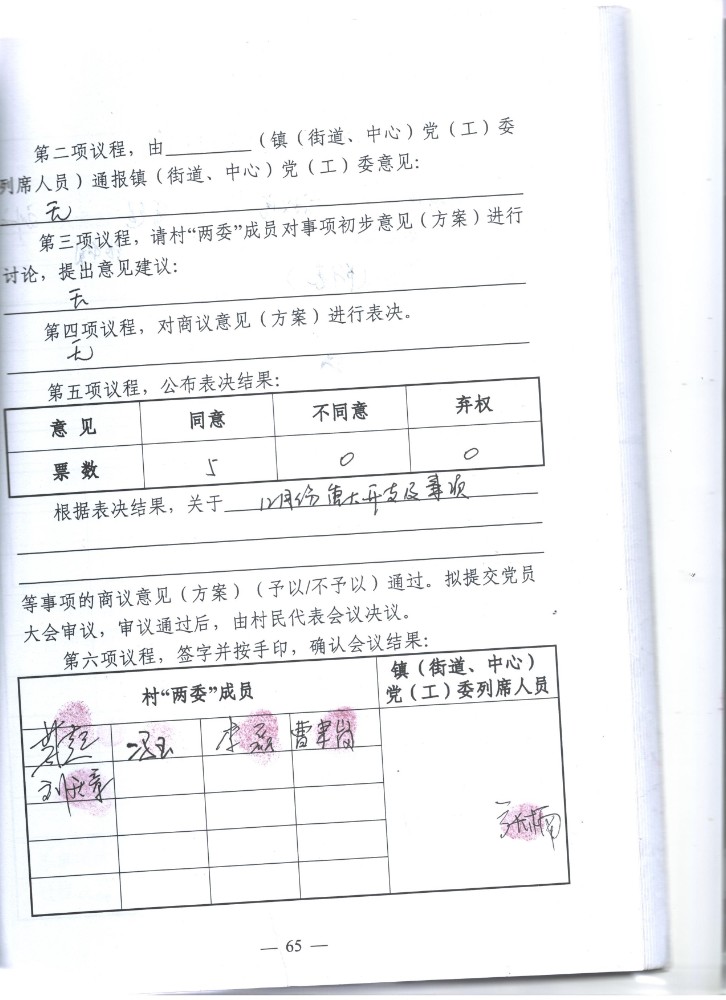 第二项议程，由________（镇（街道、中心）党（工）委
列席人员）通报镇（街道、中心）党（工）委意见：
无
第三项议程，请村“两委”成员对事项初步意见（方案）进行
讨论，提出意见建议：
无
第四项议程，对商议意见（方案）进行表决。
无
第五项议程，公布表决结果：
意见 同意 不同意 弃权
票数 5 0 0
根据表决结果，关于 12月份重大开支及事项
等事项的商议意见（方案）（予以/不予以）通过。拟提交党员
大会审议，审议通过后，由村民代表会议决议。
第六项议程，签字并按手印，确认会议结果：
村“两委”成员
镇（街道、中心）
党（工）委列席人员
冯玉 李磊 曹翠岗
— 65 —